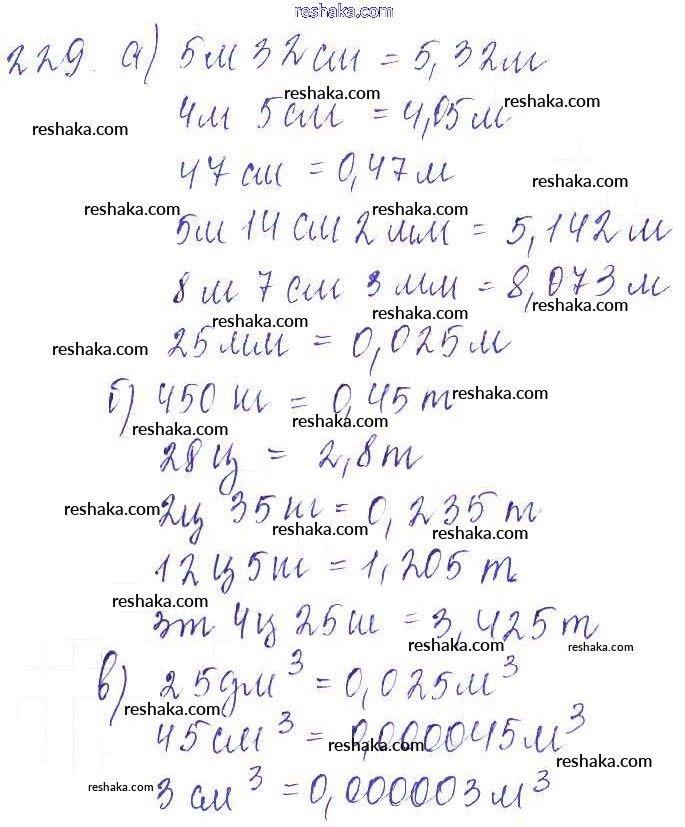 reshaka.com
229. а) 5м 32см = 5,32м
reshaka.com
reshaka.com
reshaka.com
4м 5см = 4,05м
47см = 0,47м
reshaka.com
reshaka.com
reshaka.com
5м 14см 2мм = 5,142м
8м 7см 3мм = 8,073м
reshaka.com
reshaka.com
reshaka.com
25мм = 0,025м
б) 450кг = 0,45т
reshaka.com
reshaka.com
reshaka.com
28ц = 2,8т
reshaka.com
2ц 35кг = 0,235т
reshaka.com
reshaka.com
12ц 5кг = 1,205т
reshaka.com
3т 4ц 25кг = 3,425т
reshaka.com
reshaka.com
в) 25дм³ = 0,025м³
reshaka.com
45см³ = 0,000045м³
reshaka.com
reshaka.com
reshaka.com
3см³ = 0,000003м³